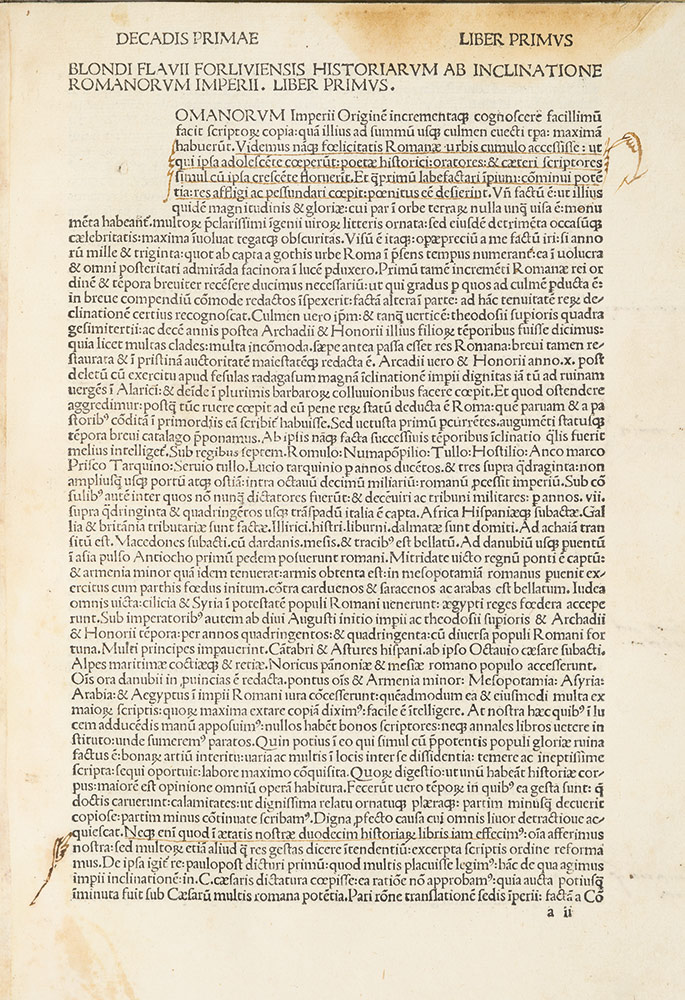 DECADIS PRIMAE LIBER PRIMVS
BLONDI FLAVII FORLIVIENSIS HISTORIARVM AB INCLINATIONE
ROMANORVM IMPERII. LIBER PRIMVS.
OMANORVM Imperii Originē incrementaqȝ cognoscere facillimū
facit scriptoꝝ copia: quā illius ad summū usqȝ culmen euecti tꝑa: maximā
habuerūt. Videmus nāqȝ fœlicitatis Romanæ urbis cumulo accessisse: ut
qui ipsa adolescēte cœperūt: poetæ historici: oratores: & cæteri scriptores
simul cū ipsa crescēte floruerīt. Et qꝫprimū labefactari īpiuni: cōminui potē
tia: res affligi ac pessundari cœpit: pœnitus eē desierint. Vn̄ factū ē: ut illius
quidē magnitudinis & gloriæ: cui par ī orbe terraꝝ nulla unqȝ uisa ē: monu
mēta habeant̄. multoꝝ p̄clarissimi īgenii uiroꝝ litteris ornata: sed eiusdē detrimēta occasūqȝ
cælebritatis: maxima īuoluat tegatqȝ obscuritas. Visū ē itaqȝ: opæpreciū a me factū iri: si anno
rū mille & triginta: quot ab capta a gothis urbe Roma ī p̄sens tempus numerant̄: ea ī uolucra
& omni posteritati admirāda facinora ī lucē ꝑduxero. Primū tamē incremēti Romanæ rei or
dinē & tēpora breuiter recēsere ducimus necessariū: ut qui gradus ꝑ quos ad culmē ꝑducta ē:
in breue compendiū cōmode redactos īspexerit: factā altera ī parte: ad hāc tenuitatē reꝝ de‐
clinationē certius recognoscat. Culmen uero ip̄m: & tanqȝ uerticē: theodosii supioris quadra
gesimitertii: ac decē annis postea Archadii & Honorii illius filioꝝ tēporibus fuisse dicimus:
quia licet multas clades: multa incōmoda. sæpe antea passa esset res Romana: breui tamen re‐
staurata & ī pristinā auctoritatē maiestatēqȝ redacta ē. Arcadii uero & Honorii anno.x. post
deletū cū exercitu apud fesulas radagasum magnā īclinationē impii dignitas iā tū ad ruinam
uergēs ī Alarici: & deīde ī plurimis barbaroꝝ colluuionibus facere cœpit. Et quod ostendere
aggredimur: postqȝ tūc ruere cœpit ad eū pene reꝝ statū deducta ē Roma: quē paruam & a pa
storibꝰ cōditā ī primordiis eā scribūt habuisse. Sed uetusta primū ꝑcurrētes. augumēti statusqȝ
tēpora breui catalago p̄ponamus. Ab ipsis nāqȝ facta successiuis tēporibus īclinatio q̄lis fuerit
melius intelliget̄. Sub regibus septem. Romulo: Numapōpilio: Tullo: Hostilio: Anco marco
Prisco Tarquino: Seruio tullo. Lucio tarquinio ꝑ annos ducētos. & tres supra q̄draginta: non
ampliusqȝ usqȝ portū atqȝ ostiā: intra octauū decimū miliariū: romanū ꝓcessit imperiū. Sub cō
sulibꝰ autē inter quos nō nunqȝ dictatores fuerūt: & decēuiri ac tribuni militares: ꝑ annos. vii.
supra q̄dringinta & quadringētos usqȝ trāspadū italia ē capta. Africa Hispaniæqȝ subactæ. Gal
lia & britānia tributariæ sunt factæ. Illirici. histri. liburni. dalmatæ sunt domiti. Ad achaiā tran
sitū est. Macedones subacti. cū dardanis. mesis. & tracibꝰ est bellatū. Ad danubiū usqȝ ꝑuentū
ī asia pulso Antiocho primū pedem posuerunt romani. Mitridate uicto regnū ponti ē captū:
& armenia minor quā idem tenuerat: armis obtenta est: in mesopotamiā romanus ꝑuenit ex‐
ercitus cum parthis fœdus initum. cōtra carduenos & saracenos ac arabas est bellatum. Iudea
omnis uicta: cilicia & Syria ī potestatē populi Romani uenerunt: ægypti reges fœdera accepe
runt. Sub imperatoribꝰ autem ab diui Augusti initio impii ac theodosii supioris & Archadii
& Honorii tēpora: per annos quadringentos: & quadringenta: cū diuersa populi Romani for
tuna. Multi principes impauerint. Cātabri & Astures hispani. ab ipso Octauio cæsare subacti.
Alpes maritimæ coctiæqȝ & retiæ. Noricus pānoniæ & mesiæ romano populo accesserunt.
Oīs ora danubii in ꝓuincias ē redacta. pontus oīs & Armenia minor: Mesopotamia: Asyria:
Arabia: & Aegyptus ī impii Romani iura cōcesserunt: quēadmodum ea & eiusmodi multa ex
maioꝝ scriptis: quoꝝ maxima extare copiā diximꝰ: facile ē ītelligere. At nostra hæc quibꝰ ī lu
cem adducēdis manū apposuimꝰ: nullos habēt bonos scriptores: neqȝ annales libros uetere in
stituto: unde sumeremꝰ paratos. Quin potius ī eo qui simul cū p̄potentis populi gloriæ ruina
factus ē: bonaꝝ artiū interitu: uaria ac multis ī locis inter se dissidentia: temere ac ineptissime
scripta: sequi oportuit: labore maximo cōquisita. Quoꝝ digestio: ut unū habeāt historiæ cor‐
pus: maiorē est opinione omniū operā habitura. Fecerūt uero tēpoꝝ in quibꝰ ea gesta sunt: q̄
doctis caruerunt: calamitates: ut dignissima relatu ornatuqȝ plæraqȝ: partim minusqȝ decuerit
copiose: partim minus cōtinuate scribamꝰ. Digna ꝓfecto causa cui omnis liuor detractioue ac‐
quiescat. Neqȝ enī quod ī ætatis nostræ duodecim historiaꝝ libris iam effecimꝰ: oīa afferimus
nostra: sed multoꝝ etiā aliud q̄ res gestas dicere ītendentiū: excerpta scriptis ordine reforma
mus. De ipsa igit̄ re: paulopost dicturi primū: quod multis placuisse legimꝰ: hāc de qua agimus
impii inclinationē: in. C. cæsaris dictatura cœpisse: ea ratiōe nō approbamꝰ: quia aucta potiusqȝ
īminuta fuit sub Cæsarū multis romana potētia. Pari rōne translationē sedis īperii: factā a Cō
a ii